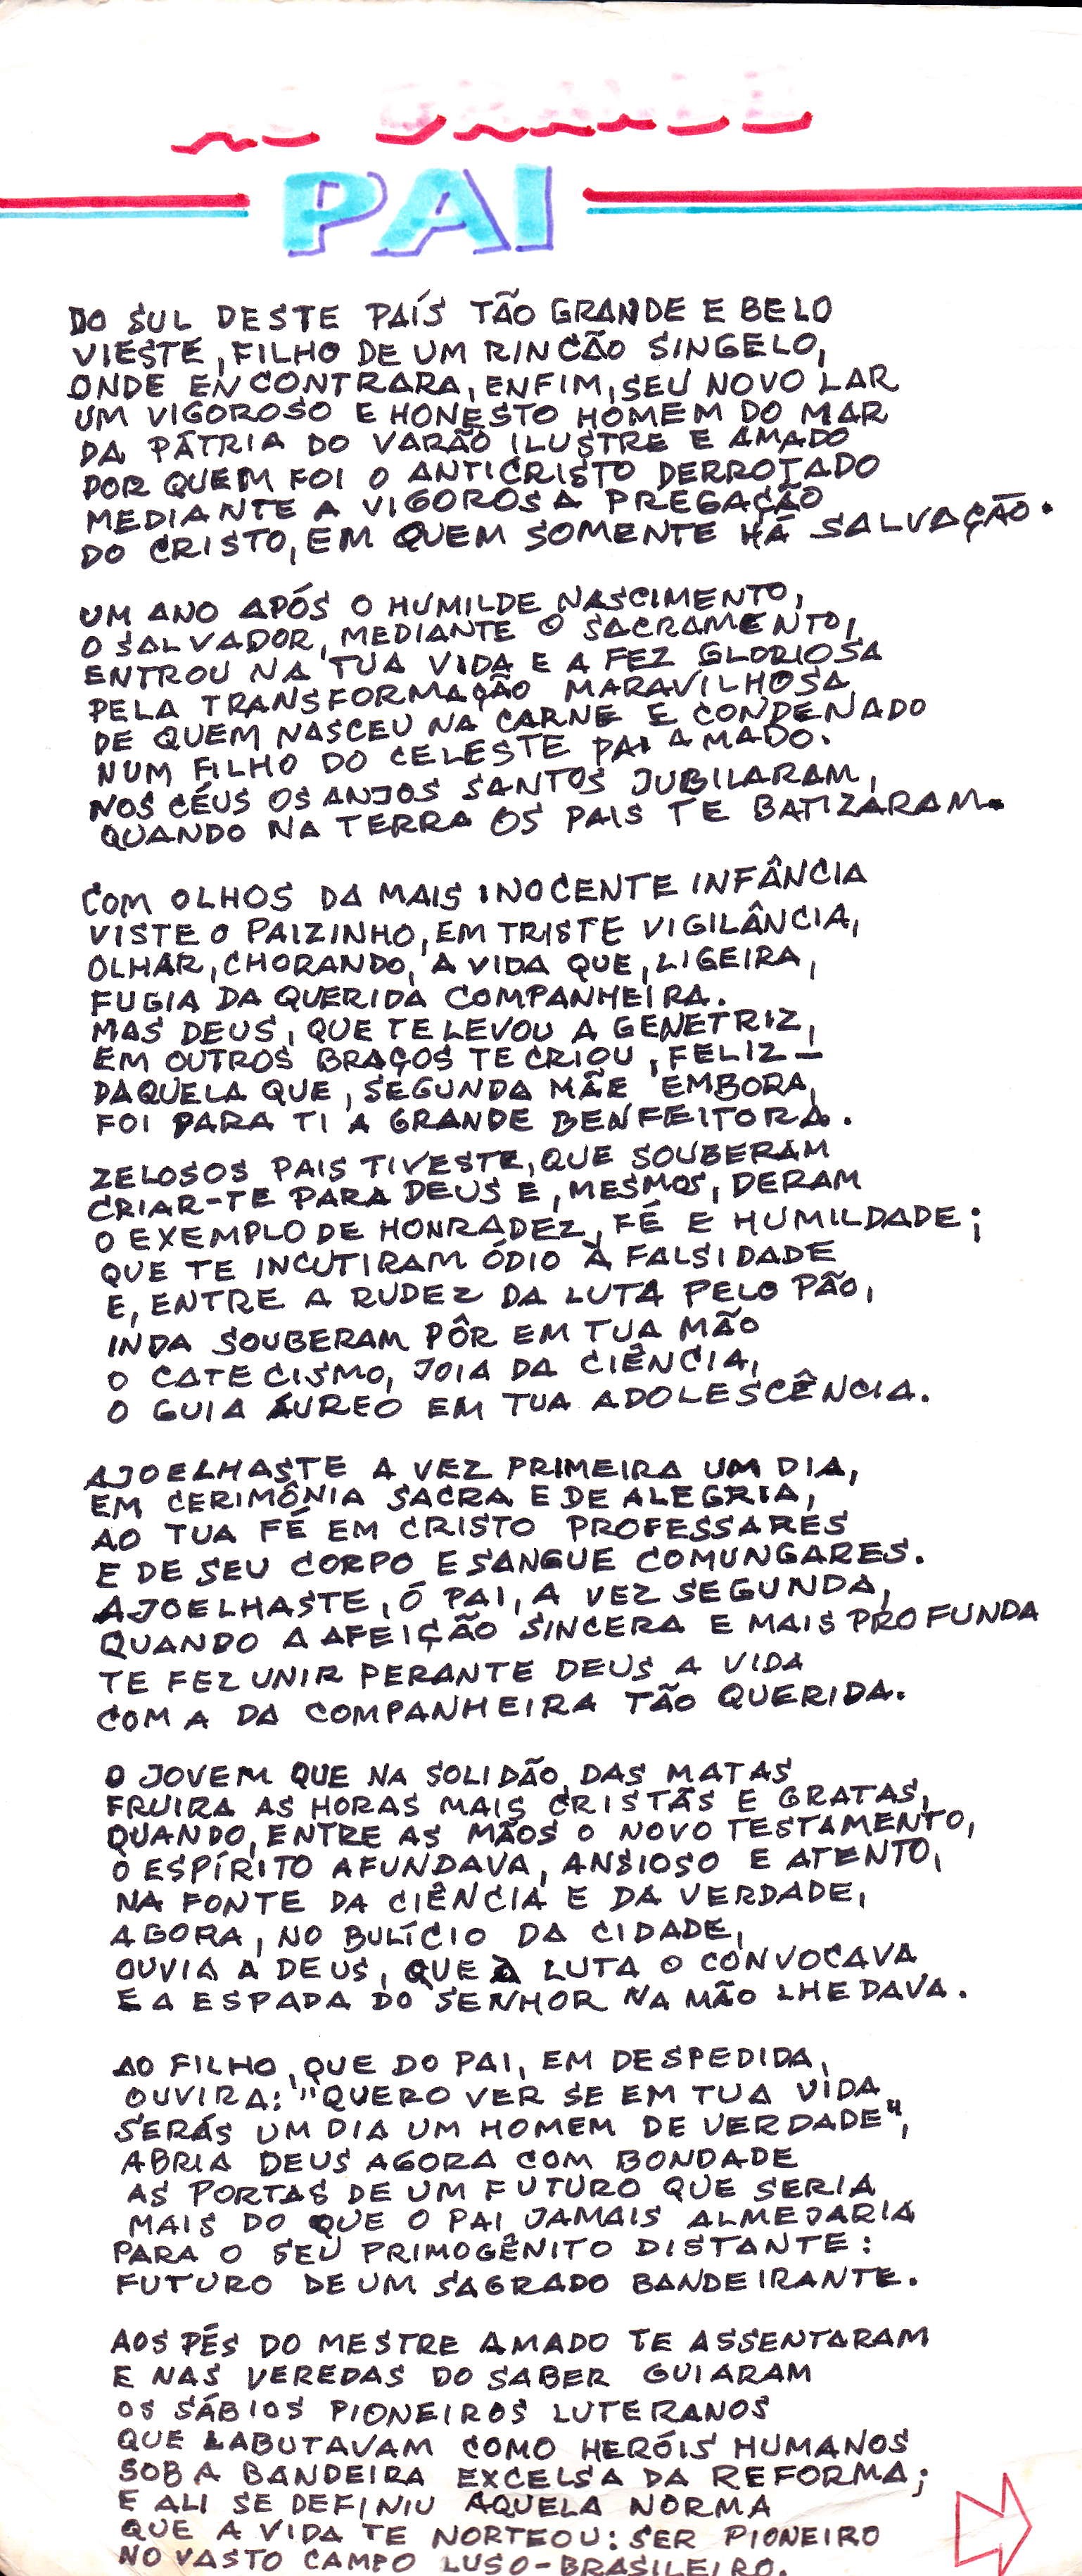 AO GRANDE
PAI
DO SUL DESTE PAÍS TÃO GRANDE E BELO
VIESTE, FILHO DE UM RINCÃO SINGELO,
ONDE ENCONTRARA, ENFIM, SEU NOVO LAR
UM VIGOROSO E HONESTO HOMEM DO MAR
DA PÁTRIA DO VARÃO ILUSTRE E AMADO
POR QUEM FOI O ANTICRISTO DERROTADO
MEDIANTE A VIGOROSA PREGAÇÃO
DO CRISTO, EM QUEM SOMENTE HÁ SALVAÇÃO.
UM ANO APÓS O HUMILDE NASCIMENTO,
O SALVADOR, MEDIANTE O SACRAMENTO,
ENTROU NA TUA VIDA E A FEZ GLORIOSA
PELA TRANSFORMAÇÃO MARAVILHOSA
DE QUEM NASCEU NA CARNE E CONDENADO
NUM FILHO DO CELESTE PAI AMADO.
NOS CÉUS OS ANJOS SANTOS JUBILARAM,
QUANDO NA TERRA OS PAIS TE BATIZARAM.
COM OLHOS DA MAIS INOCENTE INFÂNCIA
VISTE O PAIZINHO, EM TRISTE VIGILÂNCIA,
OLHAR, CHORANDO, A VIDA QUE, LIGEIRA,
FUGIA DA QUERIDA COMPANHEIRA.
MAS DEUS, QUE TE LEVOU A GENETRIZ,
EM OUTROS BRAÇOS TE CRIOU, FELIZ –
DAQUELA QUE, SEGUNDA MÃE EMBORA,
FOI PARA TI A GRANDE BENFEITORA.
ZELOSOS PAIS TIVESTE, QUE SOUBERAM
CRIAR-TE PARA DEUS E, MESMOS, DERAM
O EXEMPLO DE HONRADEZ, FÉ E HUMILDADE;
QUE TE INCUTIRAM ÓDIO À FALSIDADE
E, ENTRE A RUDEZ DA LUTA PELO PÃO,
INDA SOUBERAM PÔR EM TUA MÃO
O CATECISMO, JOIA DA CIÊNCIA,
O GUIA ÁUREO EM TUA ADOLESCÊNCIA.
AJOELHASTE A VEZ PRIMEIRA UM DIA,
EM CERIMÔNIA SACRA E DE ALEGRIA,
AO TUA FÉ EM CRISTO PROFESSARES
E DE SEU CORPO E SANGUE COMUNGARES.
AJOELHASTE, Ó PAI, A VEZ SEGUNDA,
QUANDO A AFEIÇÃO SINCERA E MAIS PROFUNDA
TE FEZ UNIR PERANTE DEUS A VIDA
COM A DA COMPANHEIRA TÃO QUERIDA.
O JOVEM QUE NA SOLIDÃO DAS MATAS
FRUIRA AS HORAS MAIS CRISTÃS E GRATAS,
QUANDO, ENTRE AS MÃOS O NOVO TESTAMENTO,
O ESPÍRITO AFUNDAVA, ANSIOSO E ATENTO,
NA FONTE DA CIÊNCIA E DA VERDADE,
AGORA, NO BULÍCIO DA CIDADE,
OUVIA A DEUS, QUE À LUTA O CONVOCAVA
E A ESPADA DO SENHOR NA MÃO LHE DAVA.
AO FILHO, QUE DO PAI, EM DESPEDIDA,
OUVIRA: "QUERO VER SE EM TUA VIDA
SERÁS UM DIA UM HOMEM DE VERDADE",
ABRIA DEUS AGORA COM BONDADE
AS PORTAS DE UM FUTURO QUE SERIA
MAIS DO QUE O PAI JAMAIS ALMEJARIA
PARA O SEU PRIMOGÊNITO DISTANTE:
FUTURO DE UM SAGRADO BANDEIRANTE.
AOS PÉS DO MESTRE AMADO TE ASSENTARAM
E NAS VEREDAS DO SABER GUIARAM
OS SÁBIOS PIONEIROS LUTERANOS
QUE LABUTAVAM COMO HERÓIS HUMANOS
SOB A BANDEIRA EXCELSA DA REFORMA;
E ALI SE DEFINIU AQUELA NORMA
QUE A VIDA TE NORTEOU: SER PIONEIRO
NO VASTO CAMPO LUSO-BRASILEIRO.